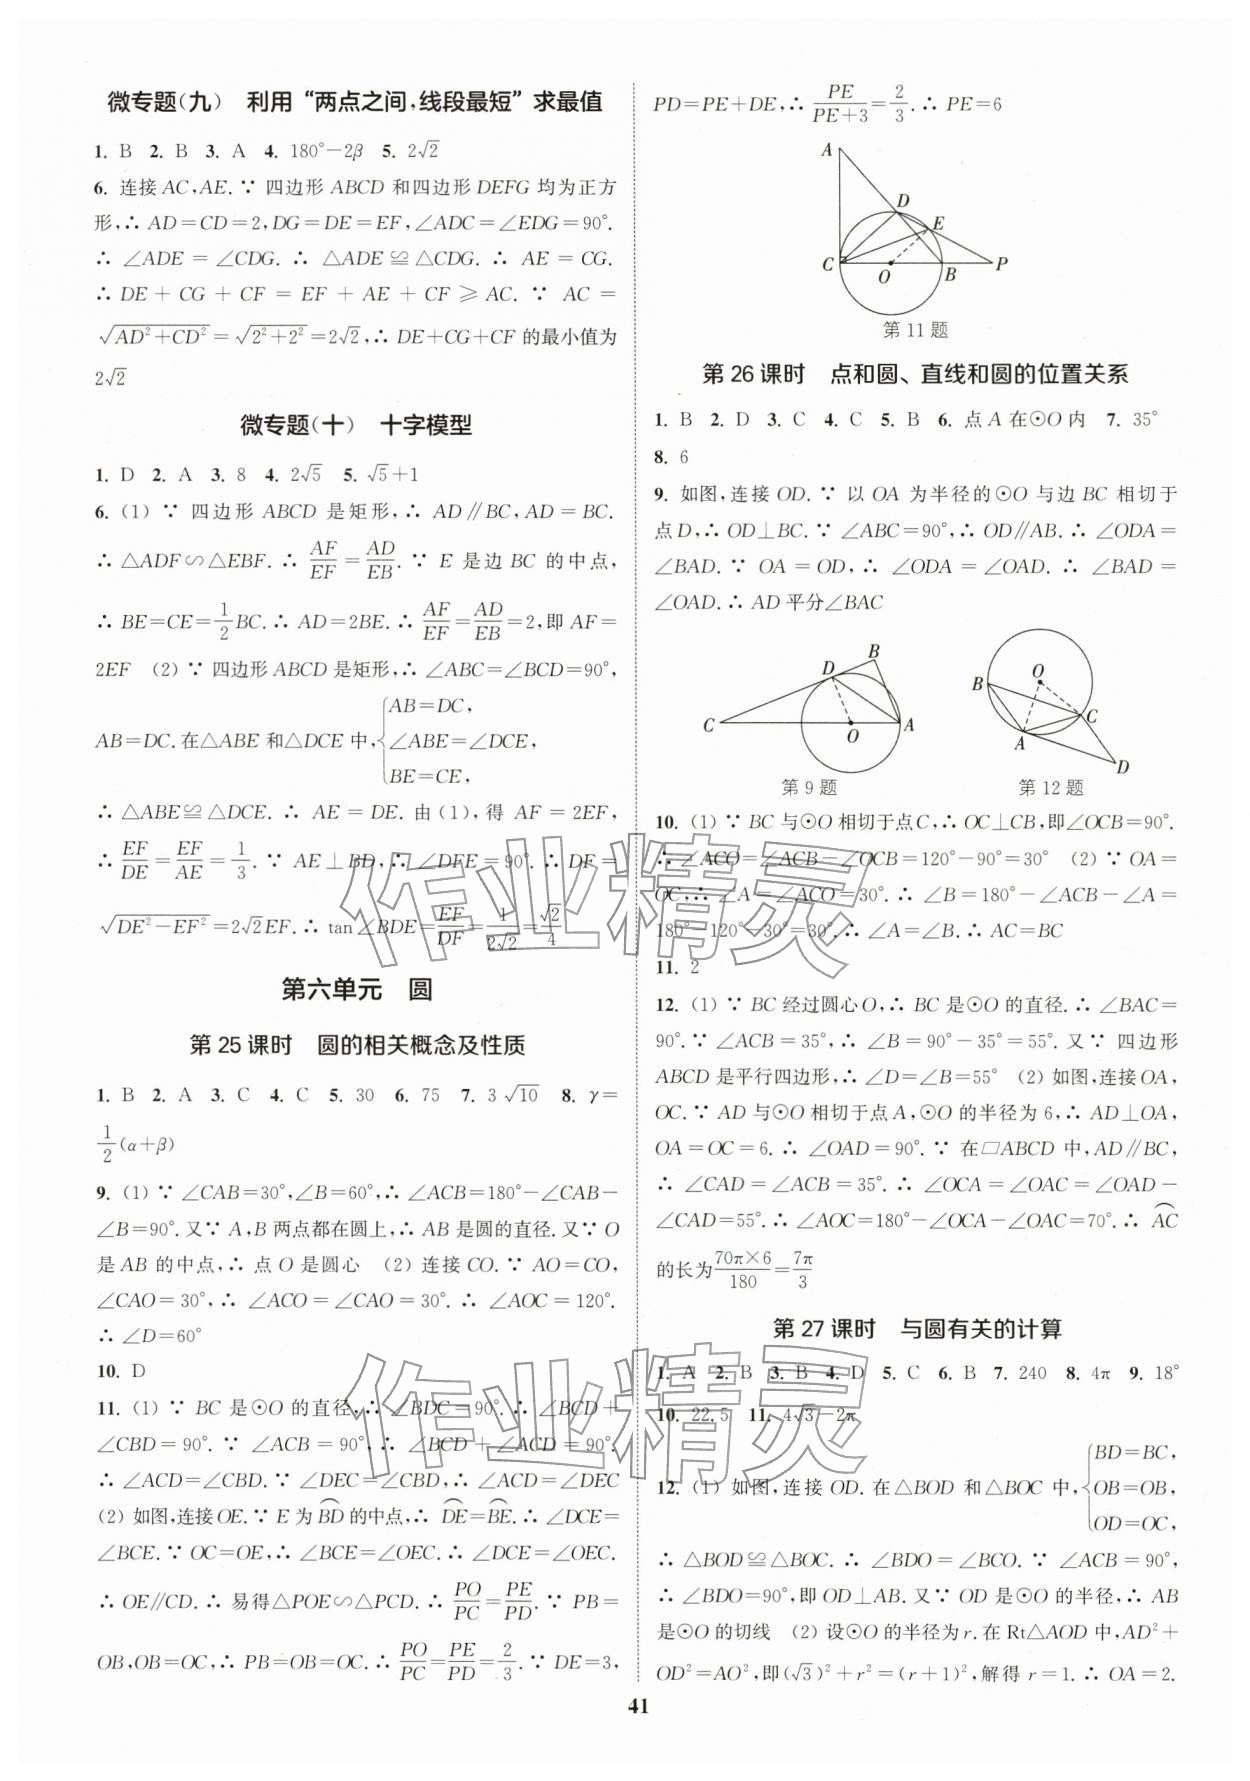 微专题(九) 利用“两点之间,线段最短”求最值
1. B 2. B 3. A 4. 180°−2β 5. 2√2
6. 连接 AC,AE.∵ 四边形 ABCD 和四边形 DEFG 均为正方
形,∴ AD=CD=2,DG=DE=EF,∠ADC=∠EDG=90°.
∴ ∠ADE=∠CDG.∴ △ADE≌△CDG.∴ AE=CG.
∴ DE+CG+CF=EF+AE+CF≥AC.∵ AC=
√(AD²+CD²)=√(2²+2²)=2√2,∴ DE+CG+CF 的最小值为
2√2
微专题(十) 十字模型
1. D 2. A 3. 8 4. 2√5 5. √5+1
6. (1) ∵ 四边形 ABCD 是矩形,∴ AD∥BC,AD=BC.
∴ △ADF∽△EBF.∴ AF/EF=AD/EB.∵ E 是边 BC 的中点,
∴ BE=CE=1/2BC.∴ AD=2BE.∴ AF/EF=AD/EB=2,即 AF=
2EF (2) ∵ 四边形 ABCD 是矩形,∴ ∠ABC=∠BCD=90°,
AB=DC.在△ABE 和△DCE 中,{AB=DC,
∠ABE=∠DCE,
BE=CE,
∴ △ABE≌△DCE.∴ AE=DE.由(1),得 AF=2EF,
∴ EF/DE=EF/AE=1/3.∵ AE⊥BD,∴ ∠DFE=90°.∴ DF=
√(DE²−EF²)=2√2EF.∴ tan∠BDE=EF/DF=1/(2√2)=√2/4
第六单元 圆
第 25 课时 圆的相关概念及性质
1. B 2. A 3. C 4. C 5. 30 6. 75 7. 3√10 8. γ=
1/2(α+β)
9. (1) ∵ ∠CAB=30°,∠B=60°,∴ ∠ACB=180°−∠CAB−
∠B=90°.又∵ A,B 两点都在圆上,∴ AB 是圆的直径.又∵ O
是 AB 的中点,∴ 点 O 是圆心 (2) 连接 CO.∵ AO=CO,
∠CAO=30°,∴ ∠ACO=∠CAO=30°.∴ ∠AOC=120°.
∴ ∠D=60°
10. D
11. (1) ∵ BC 是⊙O 的直径,∴ ∠BDC=90°.∴ ∠BCD+
∠CBD=90°.∵ ∠ACB=90°,∴ ∠BCD+∠ACD=90°.
∴ ∠ACD=∠CBD.∵ ∠DEC=∠CBD,∴ ∠ACD=∠DEC
(2) 如图,连接 OE.∵ E 为 B͡D 的中点,∴ D͡E=B͡E.∴ ∠DCE=
∠BCE.∵ OC=OE,∴ ∠BCE=∠OEC.∴ ∠DCE=∠OEC.
∴ OE∥CD.∴ 易得△POE∽△PCD.∴ PO/PC=PE/PD.∵ PB=
OB,OB=OC,∴ PB=OB=OC.∴ PO/PC=PE/PD=2/3.∵ DE=3,
PD=PE+DE,∴ PE/(PE+3)=2/3.∴ PE=6
A
D
E
C
O
B
P
第 11 题
第 26 课时 点和圆、直线和圆的位置关系
1. B 2. D 3. C 4. C 5. B 6. 点 A 在⊙O 内 7. 35°
8. 6
9. 如图,连接 OD.∵ 以 OA 为半径的⊙O 与边 BC 相切于
点 D,∴ OD⊥BC.∵ ∠ABC=90°,∴ OD∥AB.∴ ∠ODA=
∠BAD.∵ OA=OD,∴ ∠ODA=∠OAD.∴ ∠BAD=
∠OAD.∴ AD 平分∠BAC
B
D
C
O
A
第 9 题
O
B
C
A
D
第 12 题
10. (1) ∵ BC 与⊙O 相切于点 C,∴ OC⊥CB,即∠OCB=90°.
∴ ∠ACO=∠ACB−∠OCB=120°−90°=30° (2) ∵ OA=
OC,∴ ∠A=∠ACO=30°.∴ ∠B=180°−∠ACB−∠A=
180°−120°−30°=30°.∴ ∠A=∠B.∴ AC=BC
11. 2
12. (1) ∵ BC 经过圆心 O,∴ BC 是⊙O 的直径.∴ ∠BAC=
90°.∵ ∠ACB=35°,∴ ∠B=90°−35°=55°.又∵ 四边形
ABCD 是平行四边形,∴ ∠D=∠B=55° (2) 如图,连接 OA,
OC.∵ AD 与⊙O 相切于点 A,⊙O 的半径为 6,∴ AD⊥OA,
OA=OC=6.∴ ∠OAD=90°.∵ 在▱ABCD 中,AD∥BC,
∴ ∠CAD=∠ACB=35°.∴ ∠OCA=∠OAC=∠OAD−
∠CAD=55°.∴ ∠AOC=180°−∠OCA−∠OAC=70°.∴ A͡C
的长为 70π×6/180=7π/3
第 27 课时 与圆有关的计算
1. A 2. B 3. B 4. D 5. C 6. B 7. 240 8. 4π 9. 18°
10. 22.5 11. 4√3−2π
12. (1) 如图,连接 OD.在△BOD 和△BOC 中,{BD=BC,
OB=OB,
OD=OC,
∴ △BOD≌△BOC.∴ ∠BDO=∠BCO.∵ ∠ACB=90°,
∴ ∠BDO=90°,即 OD⊥AB.又∵ OD 是⊙O 的半径,∴ AB
是⊙O 的切线 (2) 设⊙O 的半径为 r.在 Rt△AOD 中,AD²+
OD²=AO²,即(√3)²+r²=(r+1)²,解得 r=1.∴ OA=2.
41
作业精灵
作业精灵